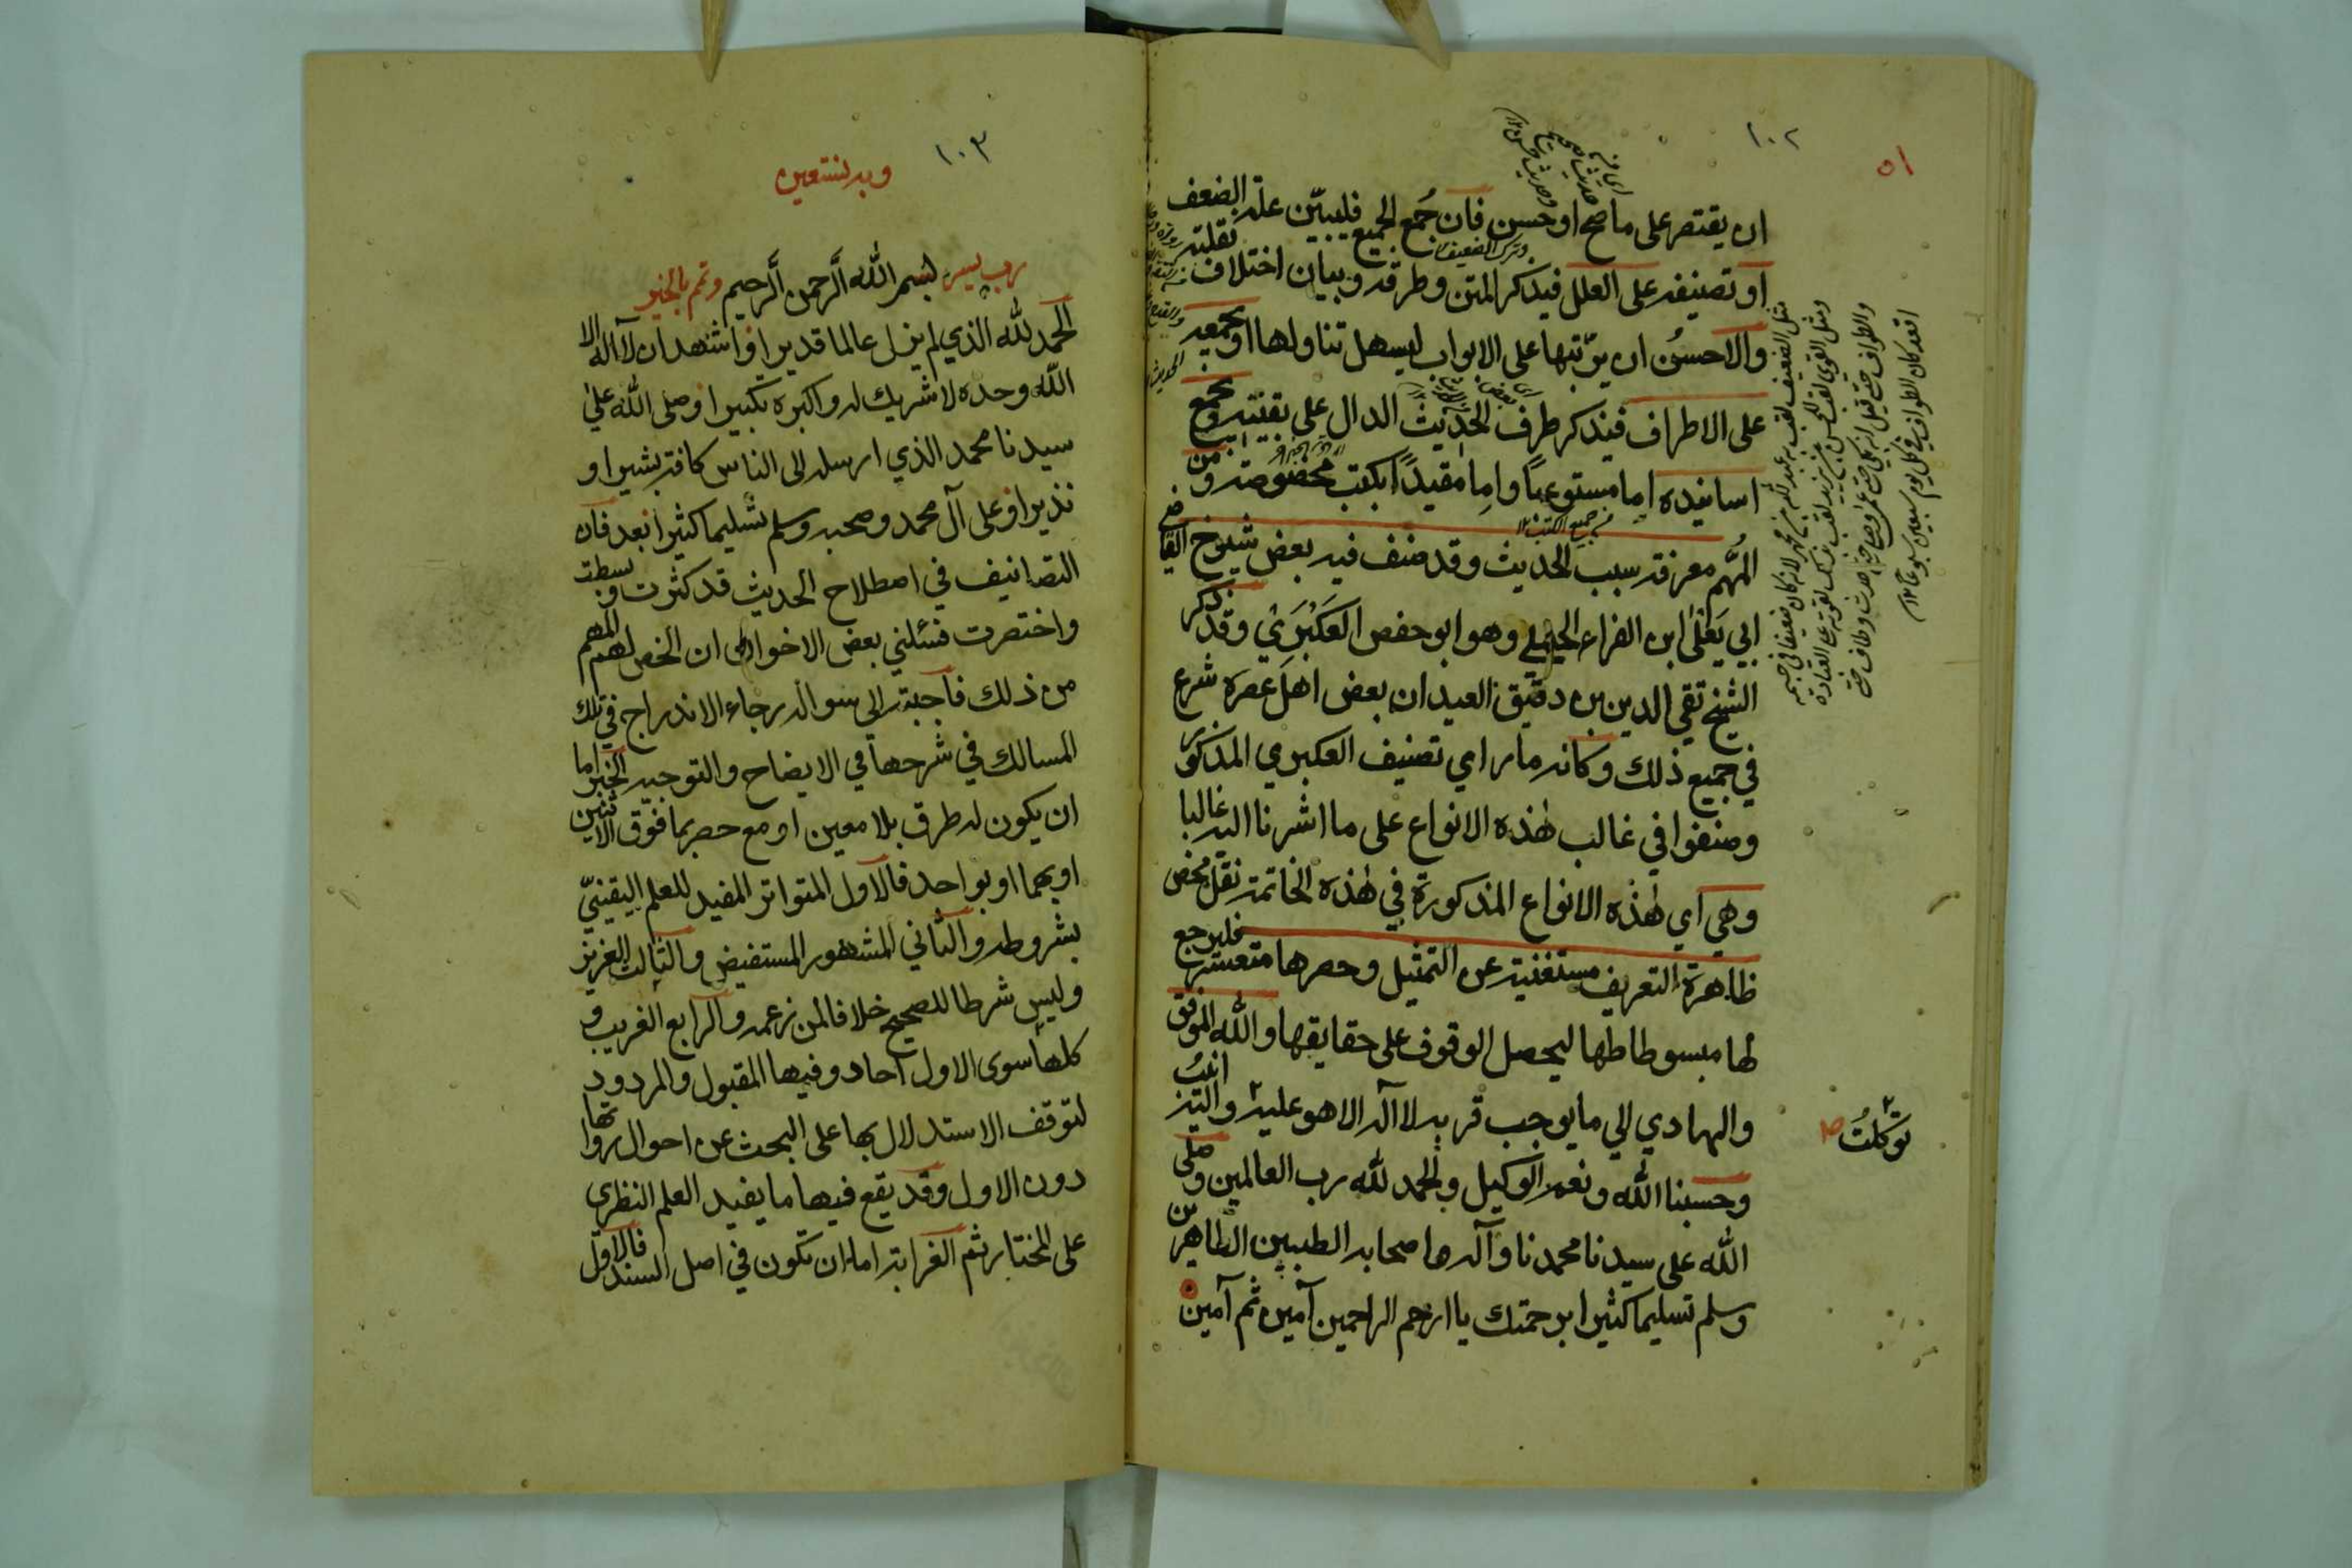 ١٠٢
٥١
ان يقتصر على ما صح او حسن فان جُمع الجميع فليبيّن علة الضعف
وترك الضعيف
او تصنيفه على العلل فيذكر المتن وطرقه وبيان اختلاف نقلته
والاحسن ان يرتبها على الابواب ليسهل تناولها او يجمعه
على الاطراف فيذكر طرف الحديث الدال على بقيته ويجمع
اسانيده اما مستوعبًا واما مقيدًا بكتب مخصوصة ومن
من جميع الكتب ١٢
المُهم معرفة سبب الحديث وقد صنف فيه بعض شيوخ القاضي
ابي يَعْلٰى ابن الفراء الحنبلي وهو ابو حفص العَكْبَرَيْ وقد ذكر
الشيخ تقي الدين بن دقيق العيد ان بعض اهل عصره شرع
في جميع ذلك وكانه ما راي تصنيف العكبري المذكور
وصنفوا في غالب هٰذه الانواع على ما اشرنا اليه غالبا
وهي اي هٰذه الانواع المذكورة في هٰذه الخاتمة نقل محض
ظاهرة التعريف مستغنية عن التمثيل وحصرها متعسر فليراجع
لها مبسوطاطها ليحصل الوقوف على حقايقها والله الموفق
والهادي الي ما يوجب قربه لا اله الا هو عليه واليه انيبُ
توكلتُ
وحسبنا الله ونعم الوكيل والحمد لله رب العالمين وصلى
الله على سيدنا محمدنا وآله واصحابه الطيبين الطاهرين
وسلم تسليما كثيرا برحمتك يا ارحم الراحمين آمين ثم آمين
مثل الضعيف لقب به عبد الله بن محمد لانه كان ضعيفا في جسمه
١٠٣
وبه نستعين
رب يسر بسم الله الرحمن الرحيم وتمم بالخير
الحمد لله الذي لم يزل عالما قديرا واشهد ان لا اله الا
الله وحده لا شريك له واكبره تكبيرا وصلى الله على
سيدنا محمد الذي ارسله الى الناس كافة بشيرا و
نذيرا وعلى آل محمد وصحبه وسلم تسليما كثيرا بعد فان
التصانيف في اصطلاح الحديث قد كثرت وبسطت
واختصرت فسئلني بعض الاخوان ان الخص لهم المهم
من ذلك فاجبته الي سواله رجاء الاندراج في تلك
المسالك في شرحها في الايضاح والتوجيه الخبر اما
ان يكون له طرق بلا معين او مع حصر بما فوق الاثنين
او بهما او بواحد فالاول المتواتر المفيد للعلم اليقينيّ
بشروطه والثاني المشهور المستفيض والثالث العزيز
وليس شرطا للصحيح خلافا لمن زعمه والرابع الغريب و
كلها سوى الاول آحاد وفيها المقبول والمردود
لتوقف الاستدلال بها على البحث عن احوال رواتها
دون الاول وقد يقع فيها ما يفيد العلم النظري
على المختار ثم الغرابة اما ان تكون في اصل السند فالاول